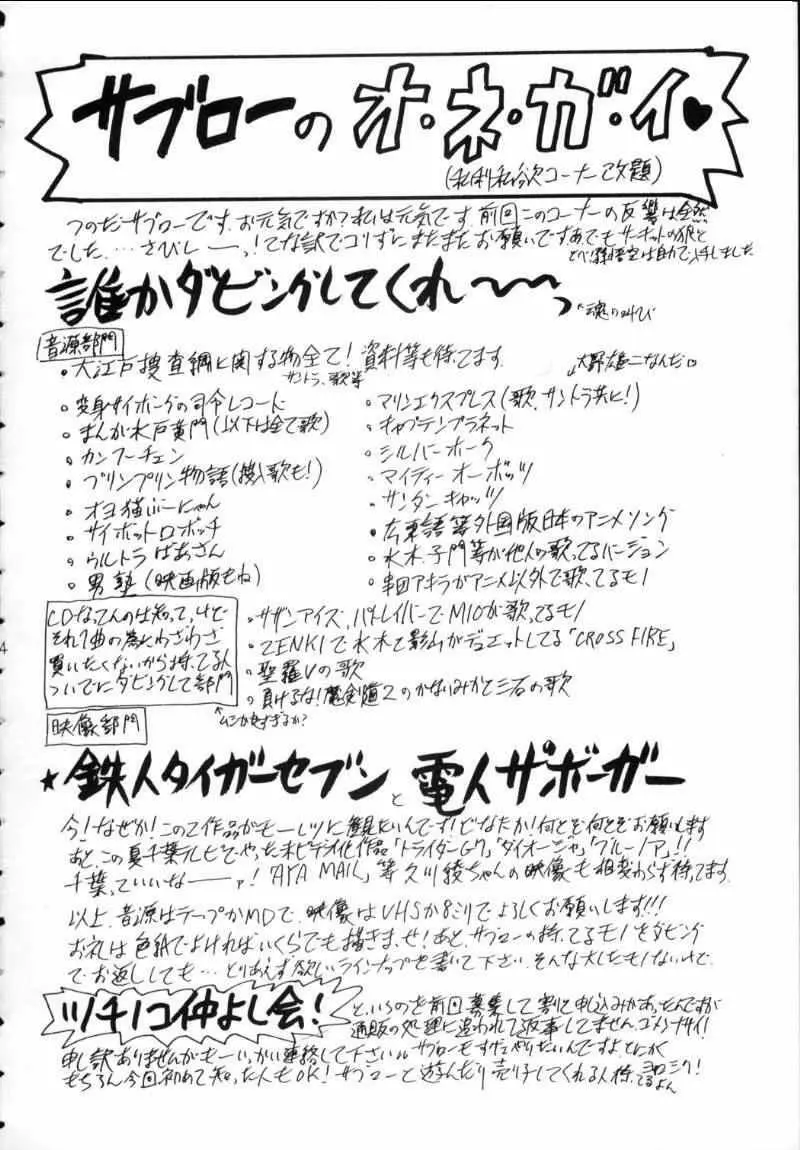 サブローの オ・ネ・ガ・イ♥
(私利私欲コーナー改題)
つのだサブローです。お元気ですか?私は元気です。前回このコーナーの反響は全然
でした。…さびしーーっ!てな訳でコリずにまたまたお願いです。あ、でもサーキットの狼と
とべ!孫悟空は自力で入手しました
誰かダビングしてくれ〜〜っ
↖魂の叫び
音源部門
・大江戸捜査網に関する物全て!資料等も待ってます。
サントラ、歌等
大野雄二なんだ
・変身サイボーグの司令レコード
・まんが水戸黄門(以下は全て歌)
・カンフーチェン
・プリンプリン物語(挿入歌も!)
・オヨネコぶーにゃん
・サイボットロボッチ
・ウルトラばあさん
・男塾(映画版もね)
・マリンエクスプレス(歌、サントラ共に!)
・キャプテンプラネット
・シルバーホーク
・マイティーオーボッツ
・サンダーキャッツ
・広東語等外国版日本のアニメソング
・水木、子門等が他人の歌ってるバージョン
・串田アキラがアニメ以外で歌ってるモノ
CDなってんのは知って、けど
それ1曲の為にわざわざ
買いたくないから持ってる人
ついでにダビングして部門
↖ムシが良すぎるか?
・サザンアイズ、パトレイバーでMIOが歌ってるモノ
・ZENKIで水木と影山がデュエットしてる「CROSS FIRE」
・聖羅Vの歌
・負けるな!魔剣道2のかないみかと三石の歌
映像部門
★鉄人タイガーセブンと電人ザボーガー
今!なぜか!この2作品がモーレツに観たいんです!どなたか!何とぞ何とぞお願いします
あと、この夏千葉テレビでやった未ビデオ化作品「トライダーG7」「ダイオージャ」「グルーノア」!!
千葉っていいなーーァ!「AYA MAIL」等久川綾ちゃんの映像も相変わらず待ってます
以上、音源はテープかMDで、映像はVHSか8ミリでよろしくお願いします!!!
お礼は色紙でよければいくらでも描きまっせ!あと、サブローの持ってるモノをダビング
でお返ししても…とりあえず欲しいラインナップを書いて下さい。そんな大したモノないけど
ツチノコ仲よし会! というのを前回募集して割と申込みがあったんですが
通販の処理に追われて返事してません、ゴメンナサイ!
申し訳ありませんがもーいっかい連絡して下さい。サブローもすげェやりたいんですよ、とにかく
もちろん今回初めて知った人もOK!サブローと遊んだり売り子してくれる人待ってるよん
ヨロシク!
4